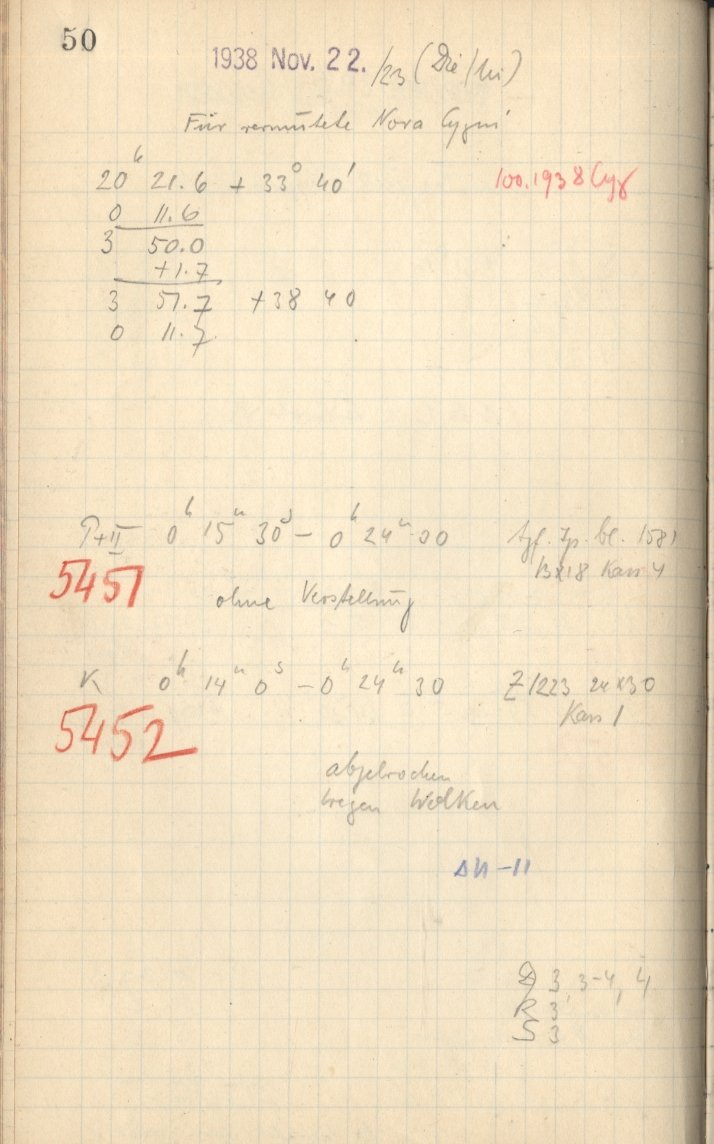 50
1938 Nov. 22. /23 (Die/Mi)
Für vermutete Nova Cygni
20h 21.6 + 33° 40'
100.1938 Cyg
0 11.6
3 50.0
+1.7
3 51.7 +38 40
0 11.7
P+II 0h 15m 30s – 0h 24m 00
bl. 1581
5451
13x18 Kass 4
ohne Verstellung
K 0h 14m 0s – 0h 24m 30
Z 1223 24x30
5452
Kass 1
abgebrochen
wegen Wolken
ΔN –11
3, 3-4, 4
R 3
S 3